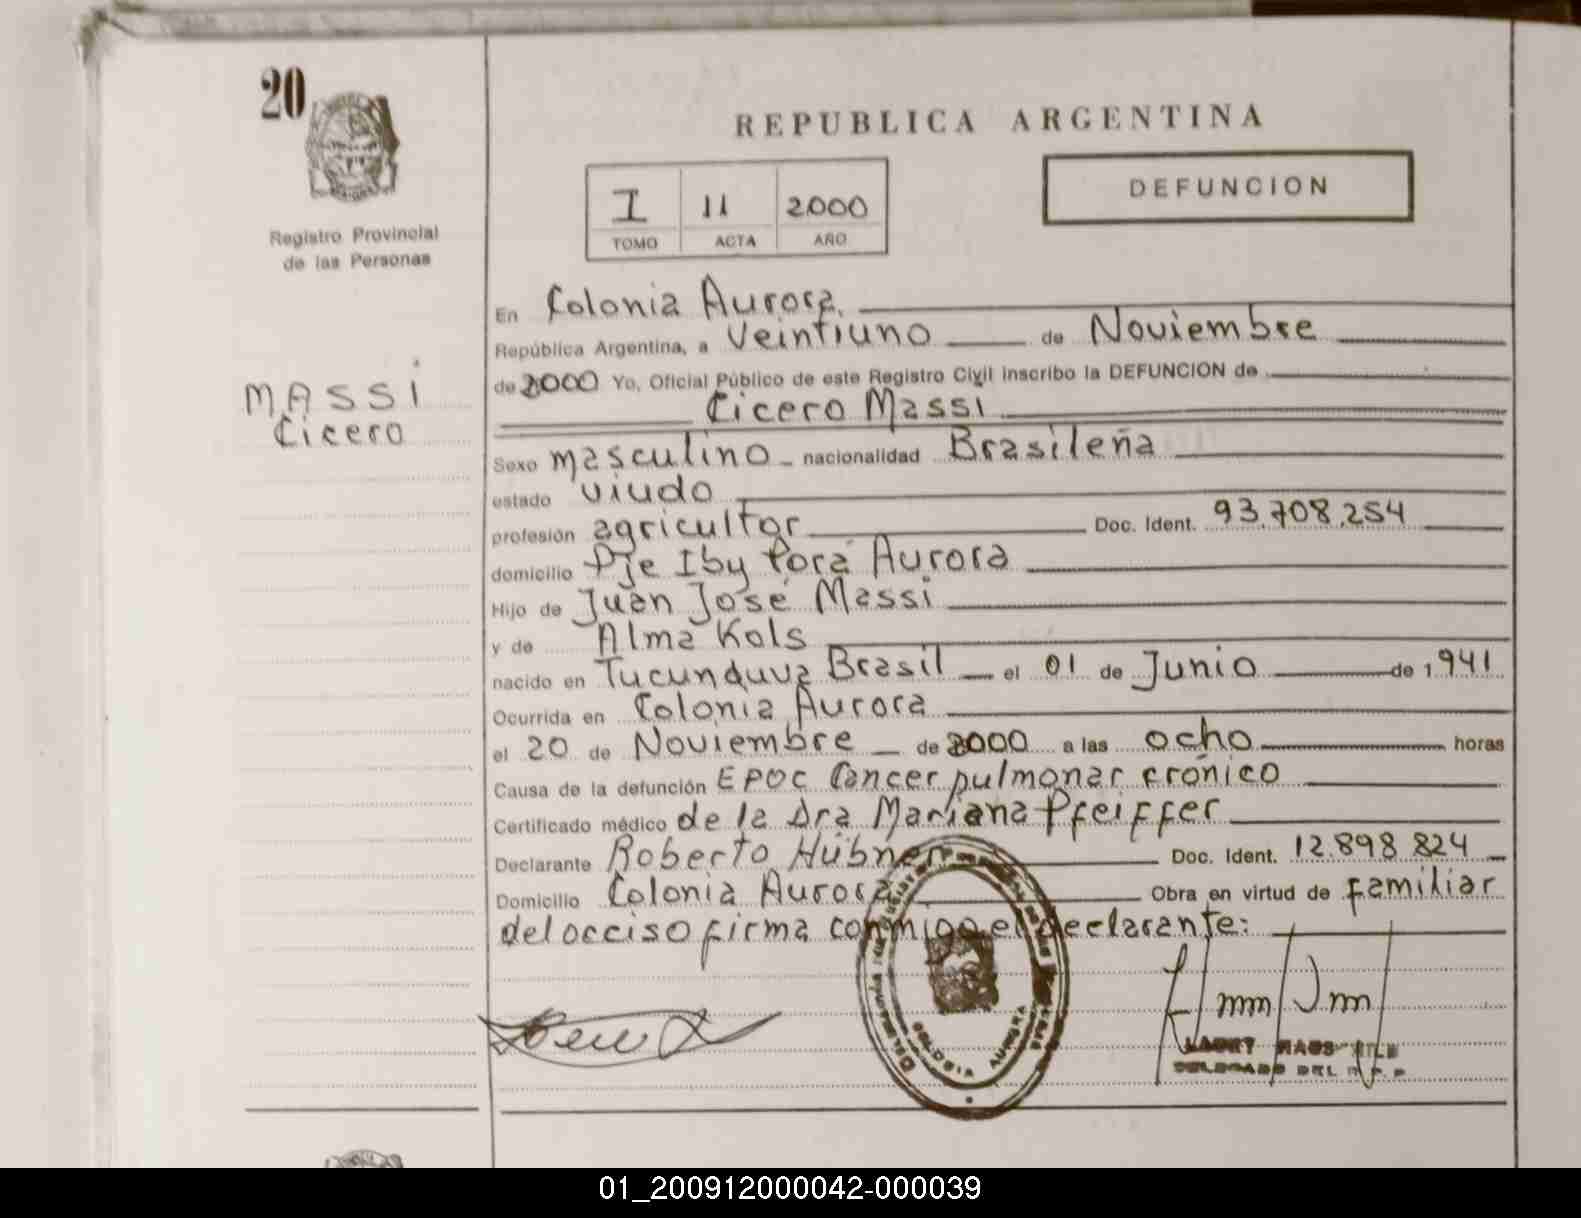 20
Registro Provincial
de las Personas
MASSI
Cicero
REPUBLICA ARGENTINA
I 11 2000
TOMO ACTA AÑO
DEFUNCION
En Colonia Aurora,
República Argentina, a Veintiuno de Noviembre
de 2000 Yo, Oficial Público de este Registro Civil inscribo la DEFUNCION de
Cicero Massi
Sexo masculino nacionalidad Brasileña
estado viudo
profesión agricultor Doc. Ident. 93.708.254
domicilio Pje Iby Porá Aurora
Hijo de Juan José Massi
y de Alma Kols
nacido en Tucunduva Brasil el 01 de Junio de 1941
Ocurrida en Colonia Aurora
el 20 de Noviembre de 2000 a las ocho horas
Causa de la defunción EPOC Cancer pulmonar crónico
Certificado médico de la Dra Mariana Pfeiffer
Declarante Roberto Hübner Doc. Ident. 12.898 824
Domicilio Colonia Aurora Obra en virtud de familiar
del occiso firma conmigo el declarante:
COLONIA AURORA
DELEGADO DEL R.P.P
01_200912000042-000039